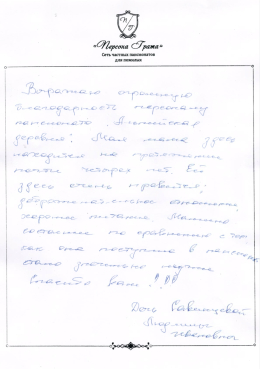 «Персона Грата»
Сеть частных пансионатов
для пожилых
Выражаю огромную
благодарность персоналу
пансионата "Английская
деревня". Моя мама здесь
находится на протяжении
почти четырех лет. Ей
здесь очень нравится,
доброжелательное отношение,
хорошее питание. Мамино
состояние по сравнению с тем,
как она поступила в пансионат
стало значительно лучше
Спасибо вам!!!
Дочь
Людмилы
Ивановны